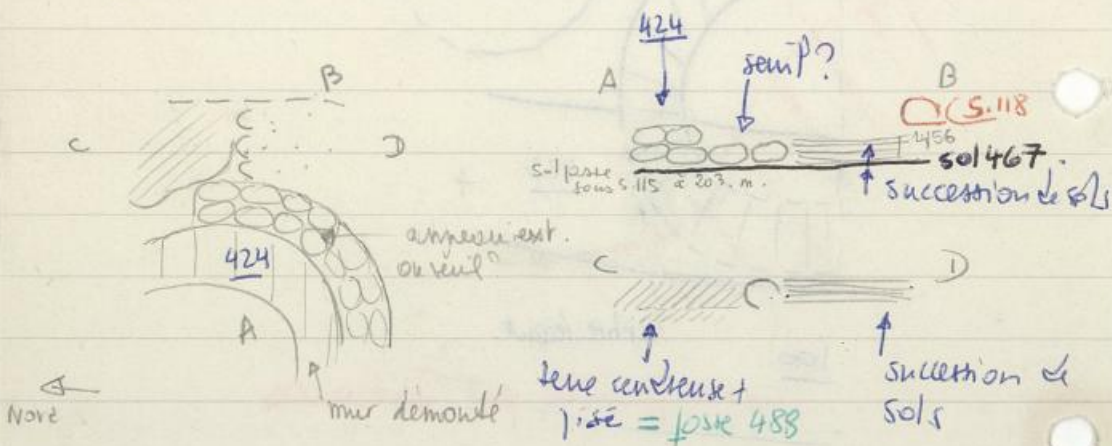 B
C
D
424
anneau ext.
ou seuil
A
mur démonté
Nord
424
seuil ?
A
B
S.118
456
sol 467.
sol passe
sous S.115 à 203. m.
succession de sols
C
D
terre cendreuse +
pisé = fosse 488
succession de
sols